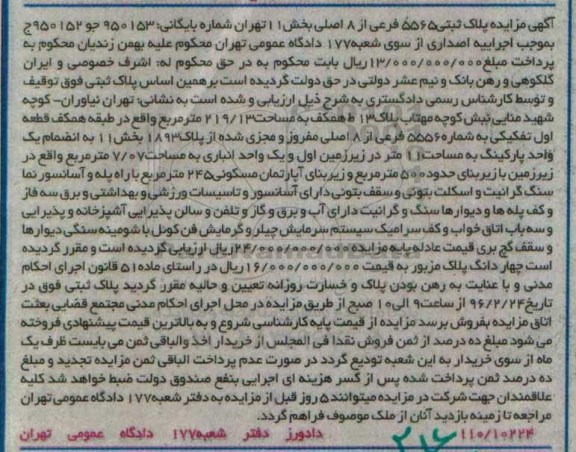 آگهی مزایده پلاک ثبتی۵۵۶۵ فرعی از ۸ اصلی بخش۱۱تهران شماره بایگانی: ۹۵۰۱۵۳ جو ۹۵۰۱۵۲ج
بموجب اجراییه اصداری از سوی شعبه۱۷۷ دادگاه عمومی تهران محکوم علیه بهمن زندیان محکوم به
پرداخت مبلغ۱۳/۰۰۰/۰۰۰/۰۰۰ریال بابت محکوم به در حق محکوم له: اشرف خصوصی و ایران
گلکوهی و رهن بانک و نیم عشر دولتی در حق دولت گردیده است بر همین اساس پلاک ثبتی فوق توقیف
و توسط کارشناس رسمی دادگستری به شرح ذیل ارزیابی و شده است به نشانی: تهران نیاوران- کوچه
شهید منایی نبش کوچه مهتاب پلاک۱۳ ط همکف به مساحت۲۱۹/۱۳ مترمربع واقع در طبقه همکف قطعه
اول تفکیکی به شماره۵۵۵۶ فرعی از ۸ اصلی مفروز و مجزی شده از پلاک۱۸۹۳ بخش۱۱ به انضمام یک
واحد پارکینگ به مساحت۱۱ متر در زیرزمین اول و یک واحد انباری به مساحت۷/۰۷ مترمربع واقع در
زیرزمین با زیربنای حدود۵۰۰مترمربع و زیربنای آپارتمان مسکونی۲۴۵ مترمربع با راه پله و آسانسور نما
سنگ گرانیت و اسکلت بتونی و سقف بتونی دارای آسانسور و تاسیسات ورزشی و بهداشتی و برق سه فاز
و کف پله ها و دیوارها سنگ و گرانیت دارای آب و برق و گاز و تلفن و سالن پذیرایی آشپزخانه و پذیرایی
و سه باب اتاق خواب و کف سرامیک سیستم سرمایش چیلر و گرمایش فن کوئل با شومینه سنگی دیوارها
و سقف گچ بری قیمت عادله پایه مزایده۲۴/۰۰۰/۰۰۰/۰۰۰ریال ارزیابی گردیده است و مقرر گردیده
است چهار دانگ پلاک مزبور به قیمت ۱۶/۰۰۰/۰۰۰/۰۰۰ریال در راستای ماده۵۱ قانون اجرای احکام
مدنی و با عنایت به رهن بودن پلاک و خسارت روزانه تعیین و حالیه مقرر گردید پلاک ثبتی فوق در
تاریخ۹۶/۲/۲۴ از ساعت۹ الی۱۰ صبح از طریق مزایده در محل اجرای احکام مدنی مجتمع قضایی بعثت
اتاق مزایده بفروش برسد مزایده از قیمت پایه کارشناسی شروع و به بالاترین قیمت پیشنهادی فروخته
می شود مبلغ ده درصد از ثمن فروش نقدا فی المجلس از خریدار اخذ والباقی ثمن می بایست ظرف یک
ماه از سوی خریدار به این شعبه تودیع گردد در صورت عدم پرداخت الباقی ثمن مزایده تجدید و مبلغ
ده درصد ثمن پرداخت شده پس از کسر هزینه ای اجرایی بنفع صندوق دولت ضبط خواهد شد کلیه
علاقمندان جهت شرکت در مزایده میتوانند۵ روز قبل از مزایده به دفتر شعبه۱۷۷ دادگاه عمومی تهران
مراجعه تا زمینه بازدید آنان از ملک موصوف فراهم گردد.
۱۱۰/۱۰۲۲۴ دادورز دفتر شعبه۱۷۷ دادگاه عمومی تهران
۲۱۶